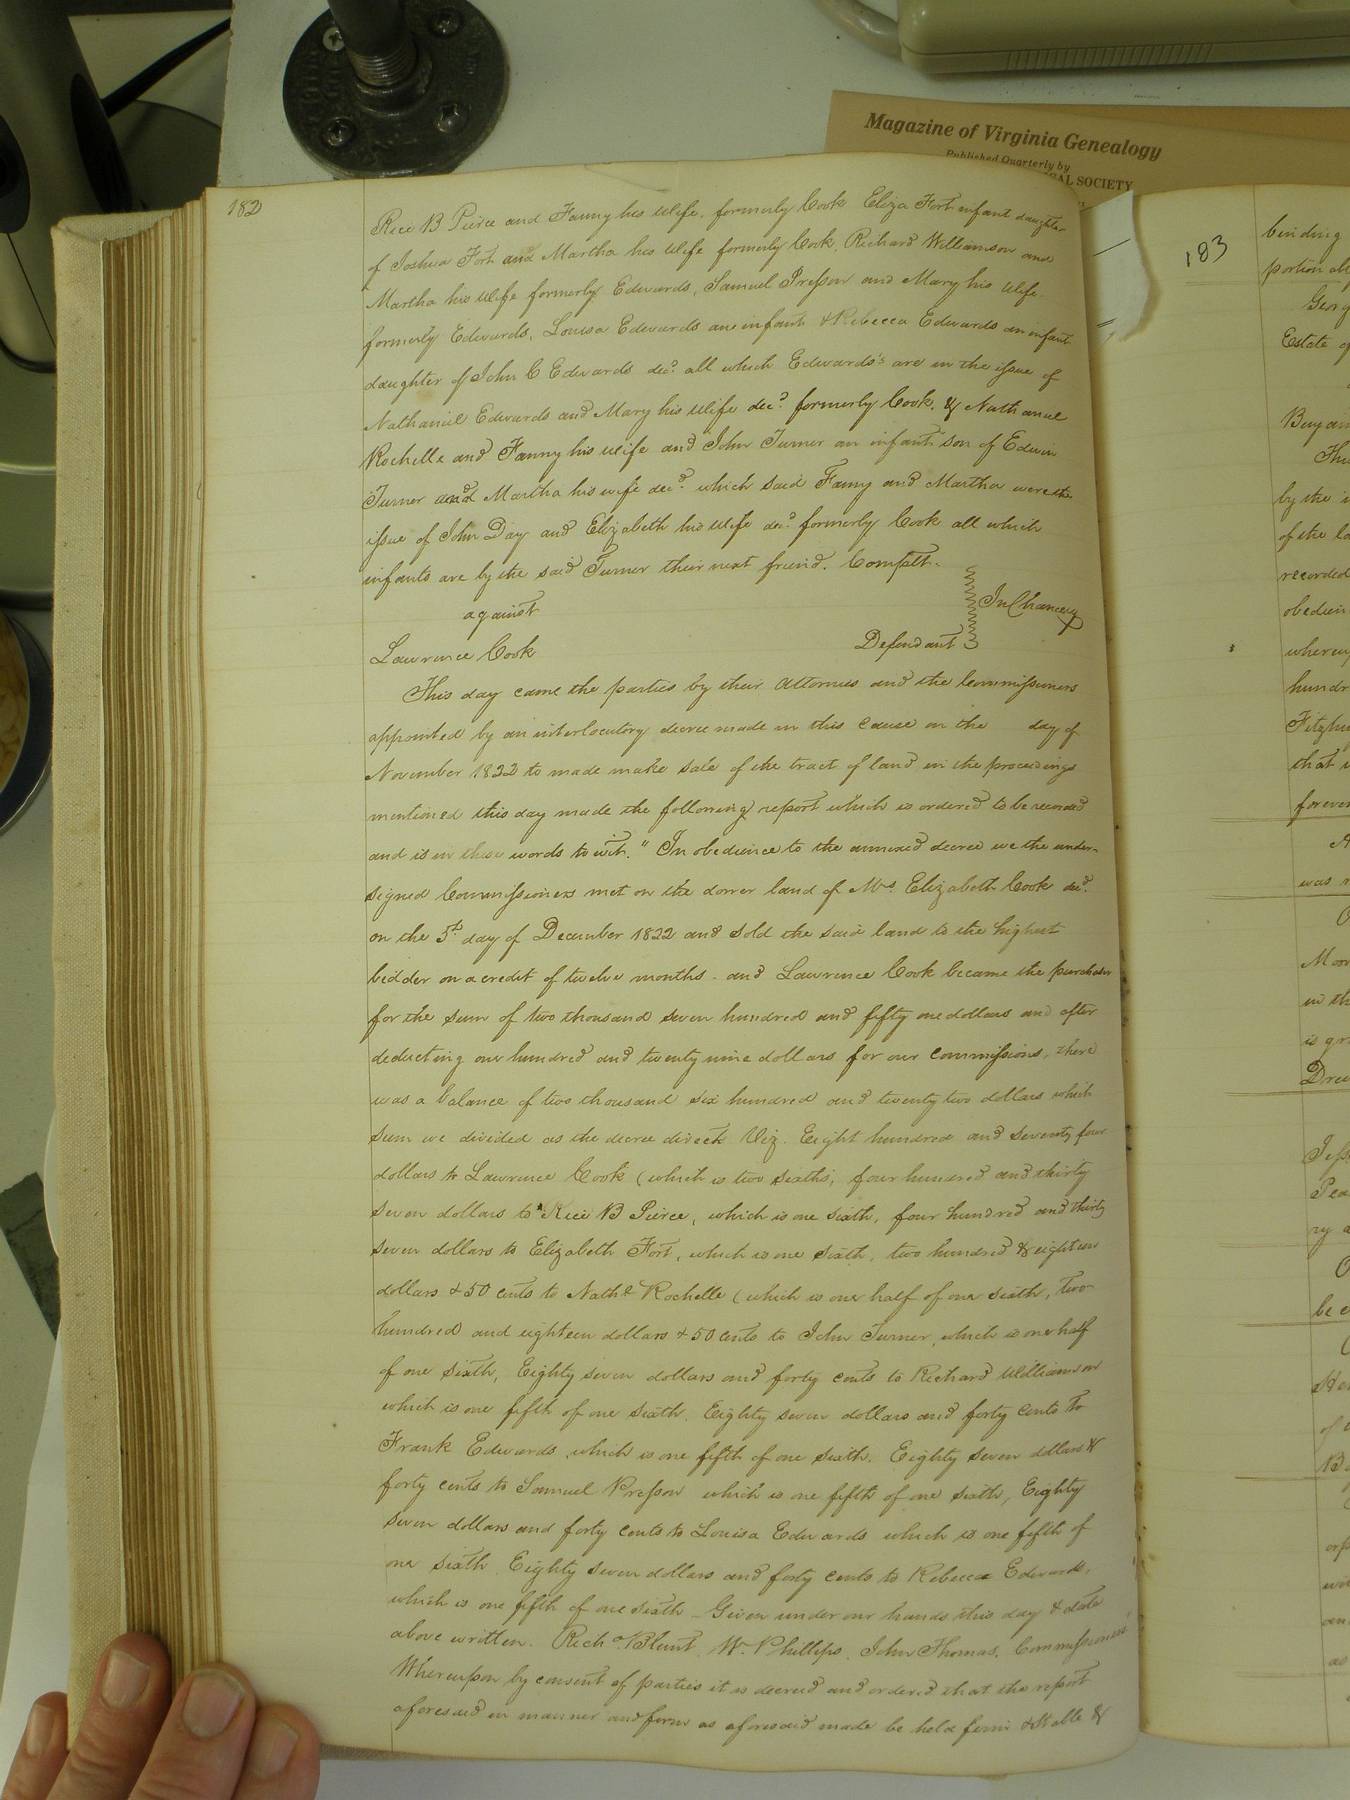 Magazine of Virginia Genealogy
Published Quarterly by
AL SOCIETY
182
Rice B Pierce and Fanny his Wife, formerly Cook Eliza Fort infant daughter
of Joshua Fort and Martha his Wife formerly Cook, Richard Williamson and
Martha his Wife formerly Edwards, Samuel Presson and Mary his Wife
formerly Edwards, Louisa Edwards an infant & Rebecca Edwards an infant
daughter of John C Edwards decd. all which Edwards's are in the issue of
Nathaniel Edwards and Mary his Wife decd. formerly Cook. & Nathaniel
Rochelle and Fanny his wife and John Turner an infant son of Edwin
Turner and Martha his wife decd. which said Fanny and Martha were the
issue of John Day and Elizabeth his Wife decd. formerly Cook all which
infants are by the said Turner their next friend. Complt.
against
In Chancery
Lawrence Cook Defendant
This day came the parties by their Attornies and the Commissioners
appointed by an interlocutory decree made in this cause on the day of
November 1822 to made make sale of the tract of land in the proceedings
mentioned this day made the following report which is ordered to be recorded
and is in these words to wit. "In obedience to the annexed decree we the under-
signed Commissioners met on the dower land of Mrs. Elizabeth Cook decd.
on the 5th day of December 1822 and sold the said land to the highest
bidder on a credit of twelve months. and Lawrence Cook became the purchaser
for the sum of two thousand seven hundred and fifty one dollars and after
deducting one hundred and twenty nine dollars for our commissions, there
was a balance of two thousand six hundred and twenty two dollars which
sum we divided as the decree direct Viz. Eight hundred and seventy four
dollars to Lawrence Cook (which is two sixths, four hundred and thirty
seven dollars to Rice B Pierce, which is one sixth, four hundred and thirty
seven dollars to Elizabeth Fort, which is one sixth, two hundred & eighteen
dollars & 50 cents to Nathl. Rochelle (which is one half of one sixth, two
hundred and eighteen dollars & 50 cents to John Turner, which is one half
of one sixth, Eighty seven dollars and forty cents to Richard Williamson
which is one fifth of one sixth. Eighty seven dollars and forty cents to
Frank Edwards, which is one fifth of one sixth. Eighty seven dollars &
forty cents to Samuel Presson which is one fifth of one sixth, Eighty
seven dollars and forty cents to Louisa Edwards which is one fifth of
one sixth Eighty seven dollars and forty cents to Rebecca Edwards,
which is one fifth of one sixth - Given under our hands this day & date
above written. Richd. Blunt, Wm. Phillips, John Thomas, Commissioners"
Whereupon by consent of parties it is decreed and ordered that the report
aforesaid in manner and form as aforesaid made be held firm & stable &
183
binding
portion
Estate
by the
of the
recorded
hundr
Fitzhu
that
forever
was
in th
is gr
be